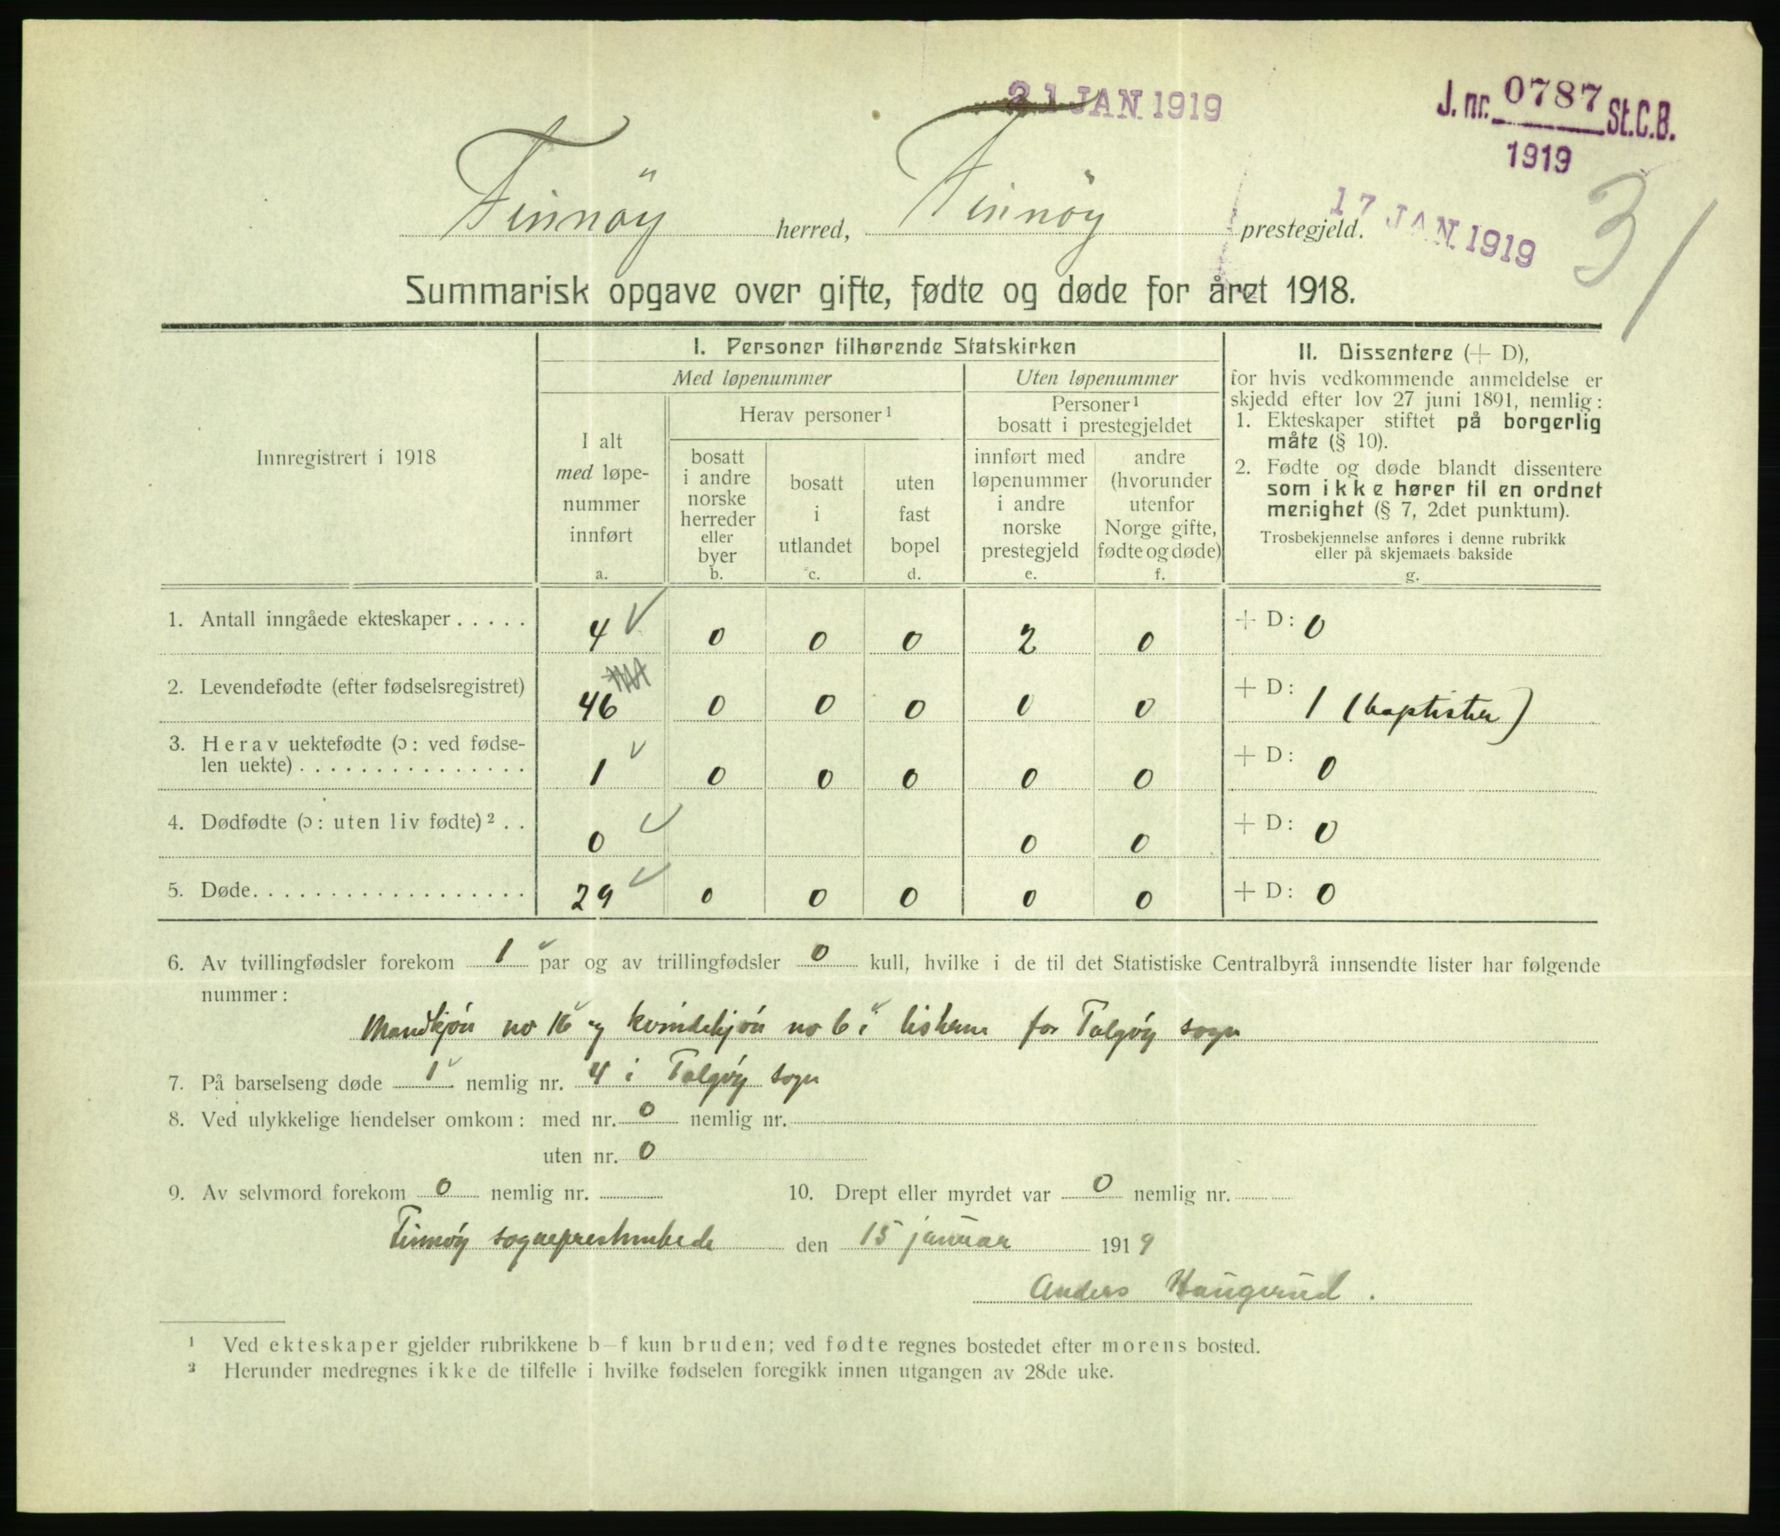 21 JAN 1919
J. nr. 0787 St.C.B.
1919
17 JAN. 1919
31
Finnöy herred, Finnöy prestegjeld.
Summarisk opgave over gifte, fødte og døde for året 1918.
Innregistrert i 1918
I. Personer tilhørende Statskirken
Med løpenummer
Uten løpenummer
I alt
med løpe-
nummer
innført
a.
Herav personer¹
bosatt
i andre
norske
herreder
eller
byer
b.
bosatt
i
utlandet
c.
uten
fast
bopel
d.
Personer¹
bosatt i prestegjeldet
innført med
løpenummer
i andre
norske
prestegjeld
e.
andre
(hvorunder
utenfor
Norge gifte,
fødte og døde)
f.
II. Dissentere (+ D),
for hvis vedkommende anmeldelse er
skjedd efter lov 27 juni 1891, nemlig:
1. Ekteskaper stiftet på borgerlig
måte (§ 10).
2. Fødte og døde blandt dissentere
som ikke hører til en ordnet
menighet (§ 7, 2det punktum).
Trosbekjennelse anføres i denne rubrikk
eller på skjemaets bakside
g.
1. Antall inngåede ekteskaper..... 4 0 0 0 2 0 + D: 0
2. Levendefødte (efter fødselsregistret) 46 0 0 0 0 0 + D: 1 (baptister)
3. Herav uektefødte (ɔ: ved fødse-
len uekte)............... 1 0 0 0 0 0 + D: 0
4. Dødfødte (ɔ: uten liv fødte)².. 0 0 0 + D: 0
5. Døde.................. 29 0 0 0 0 0 + D: 0
6. Av tvillingfødsler forekom 1 par og av trillingfødsler 0 kull, hvilke i de til det Statistiske Centralbyrå innsendte lister har følgende
nummer:
Mandkjön no 16 og kvindekjön no 6 i listerne for Talgöy sogn
7. På barselseng døde 1 nemlig nr. 4 i Talgöy sogn
8. Ved ulykkelige hendelser omkom: med nr. 0 nemlig nr.
uten nr. 0
9. Av selvmord forekom 0 nemlig nr.
10. Drept eller myrdet var 0 nemlig nr.
Finnöy sogneprestembede den 15 januar 1919
Anders Haugerud.
¹ Ved ekteskaper gjelder rubrikkene b–f kun bruden; ved fødte regnes bostedet efter morens bosted.
² Herunder medregnes ikke de tilfelle i hvilke fødselen foregikk innen utgangen av 28de uke.